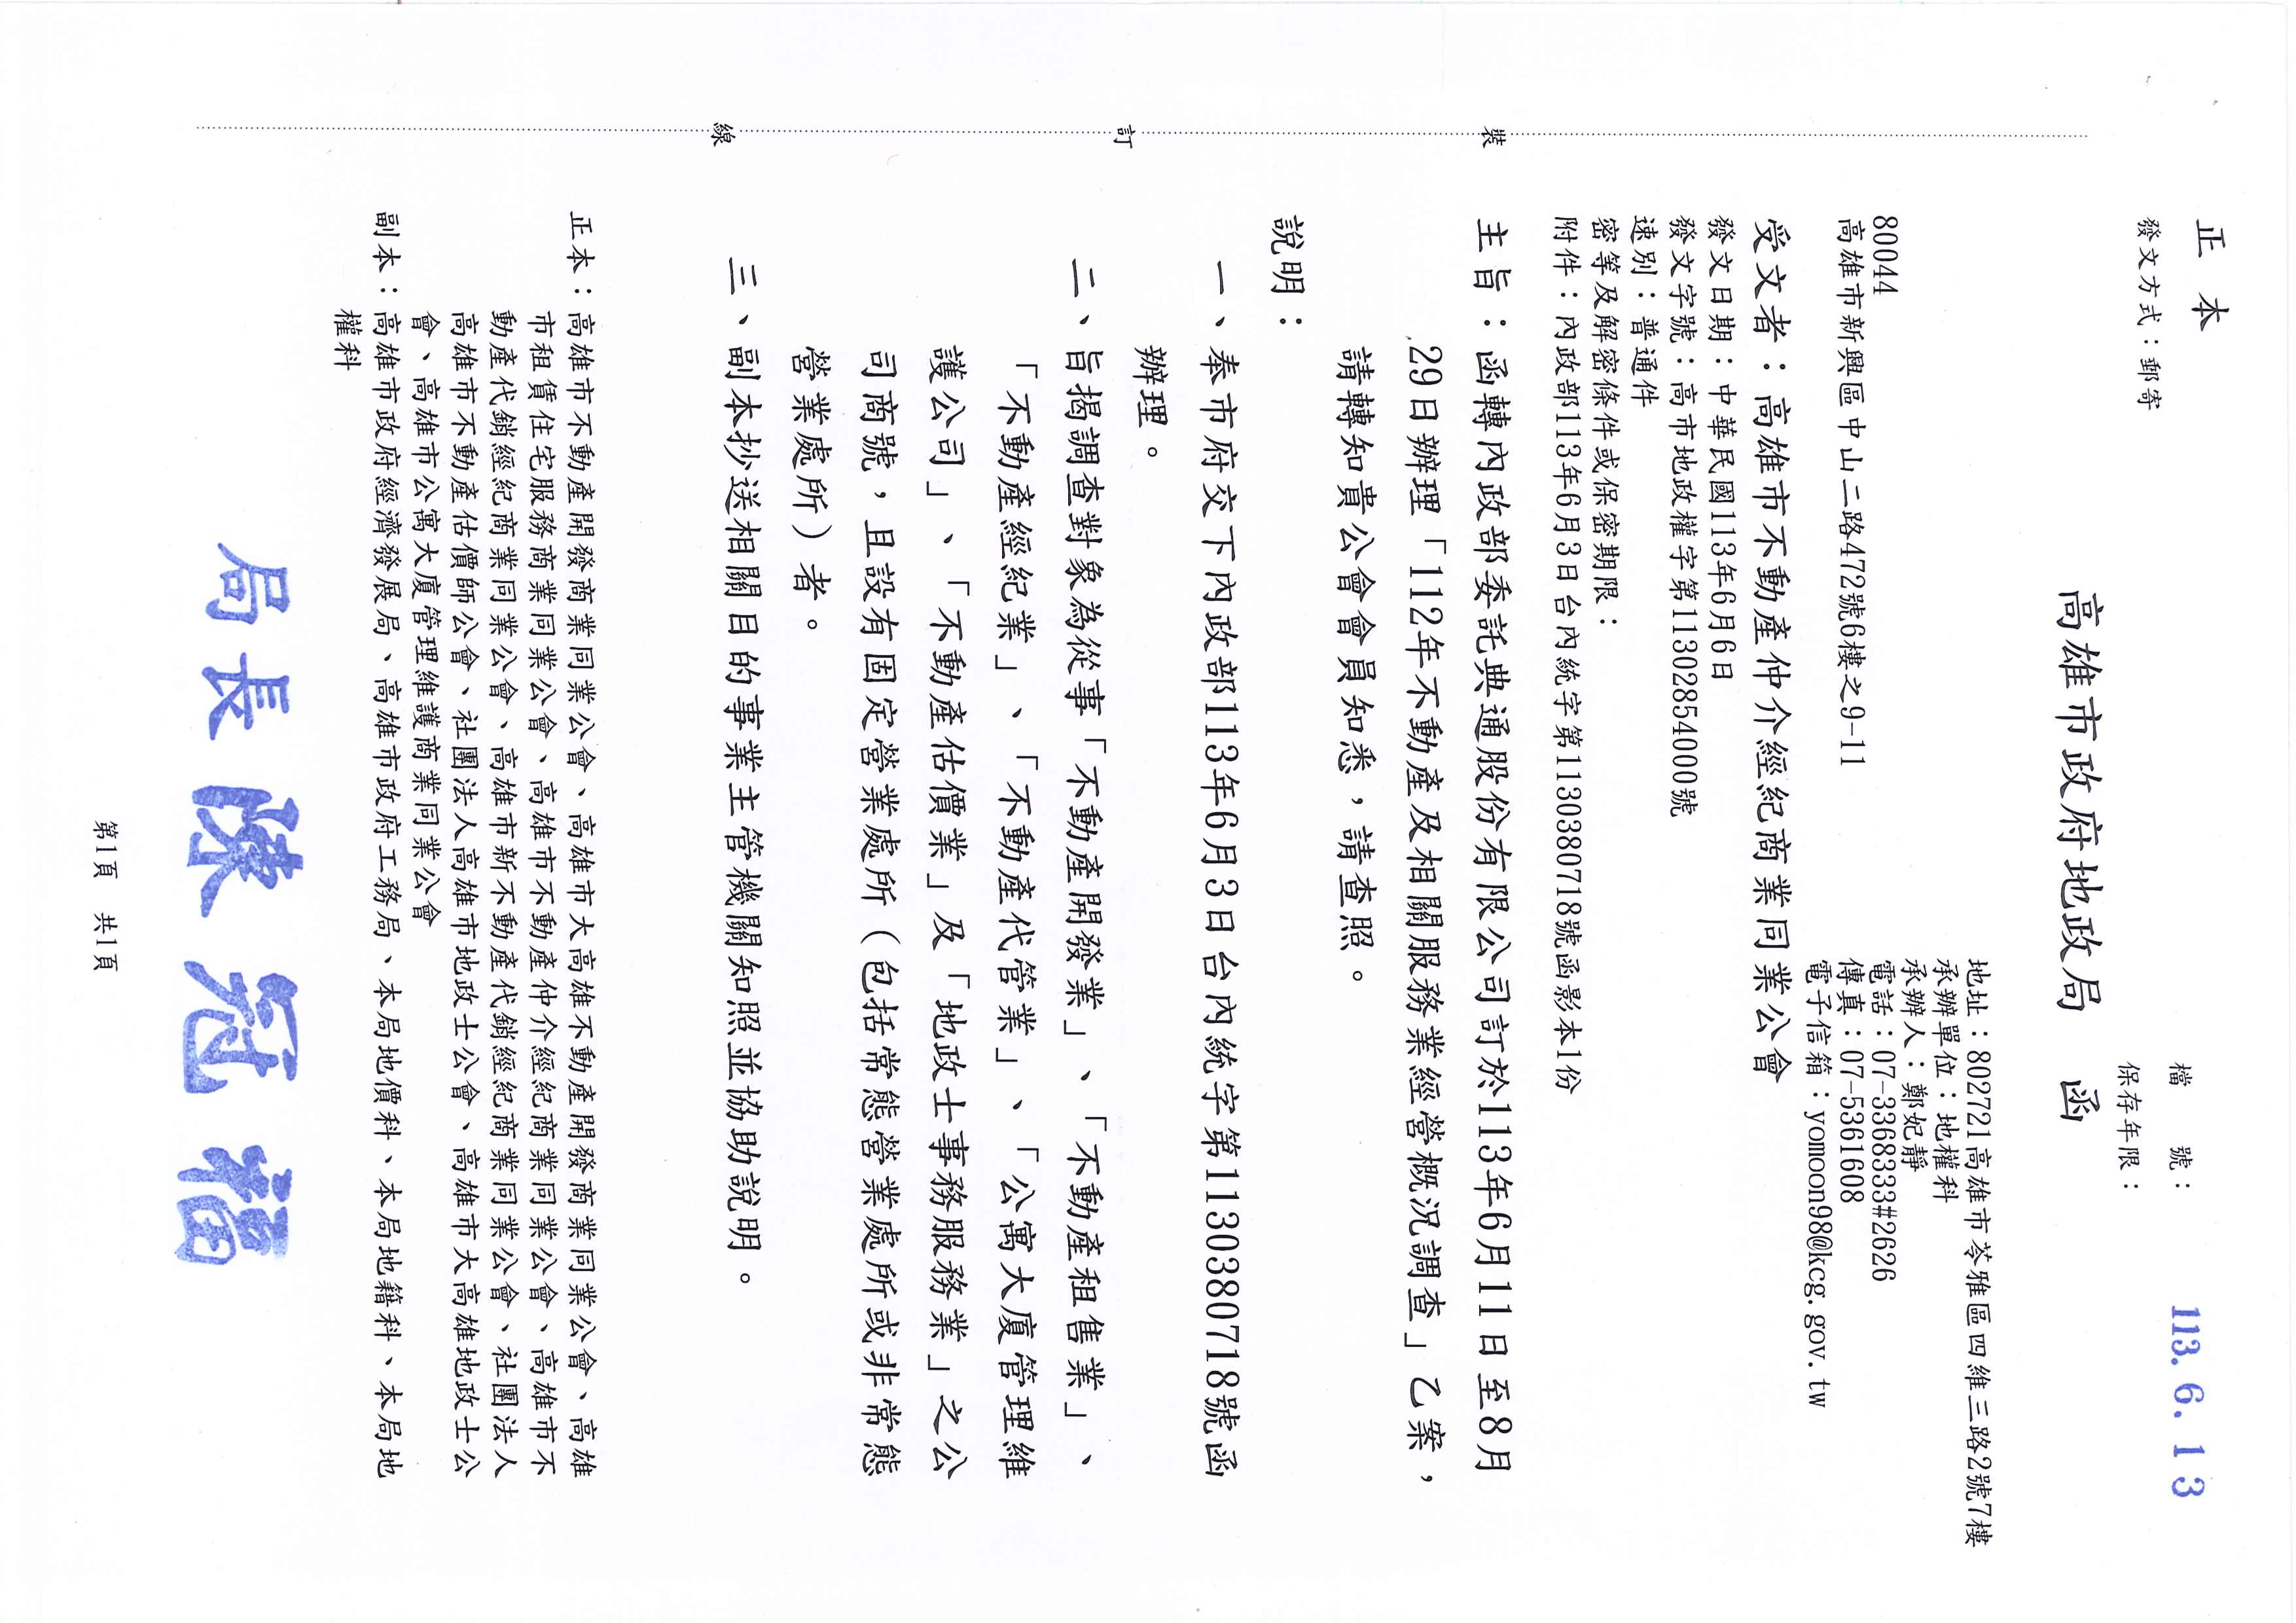 檔　　號：
保存年限：
113. 6. 13
正本
發文方式：郵寄
高雄市政府地政局　函
地址：802721高雄市苓雅區四維三路2號7樓
承辦單位：地權科
承辦人：鄭妃靜
電話：07-3368333#2626
傳真：07-5361608
電子信箱：yomoon98@kcg.gov.tw
80044
高雄市新興區中山二路472號6樓之9-11
受文者：高雄市不動產仲介經紀商業同業公會
發文日期：中華民國113年6月6日
發文字號：高市地政權字第11302854000號
速別：普通件
密等及解密條件或保密期限：
附件：內政部113年6月3日台內統字第1130380718號函影本1份
主旨：函轉內政部委託典通股份有限公司訂於113年6月11日至8月
29日辦理「112年不動產及相關服務業經營概況調查」乙案，
請轉知貴公會會員知悉，請查照。
說明：
一、奉市府交下內政部113年6月3日台內統字第1130380718號函
辦理。
二、旨揭調查對象為從事「不動產開發業」、「不動產租售業」、
「不動產經紀業」、「不動產代管業」、「公寓大廈管理維
護公司」、「不動產估價業」及「地政士事務服務業」之公
司商號，且設有固定營業處所（包括常態營業處所或非常態
營業處所）者。
三、副本抄送相關目的事業主管機關知照並協助說明。
正本：高雄市不動產開發商業同業公會、高雄市大高雄不動產開發商業同業公會、高雄
市租賃住宅服務商業同業公會、高雄市不動產仲介經紀商業同業公會、高雄市不
動產代銷經紀商業同業公會、高雄市新不動產代銷經紀商業同業公會、社團法人
高雄市不動產估價師公會、社團法人高雄市地政士公會、高雄市大高雄地政士公
會、高雄市公寓大廈管理維護商業同業公會
副本：高雄市政府經濟發展局、高雄市政府工務局、本局地價科、本局地籍科、本局地
權科
局長陳冠福
第1頁　共1頁
裝
訂
線